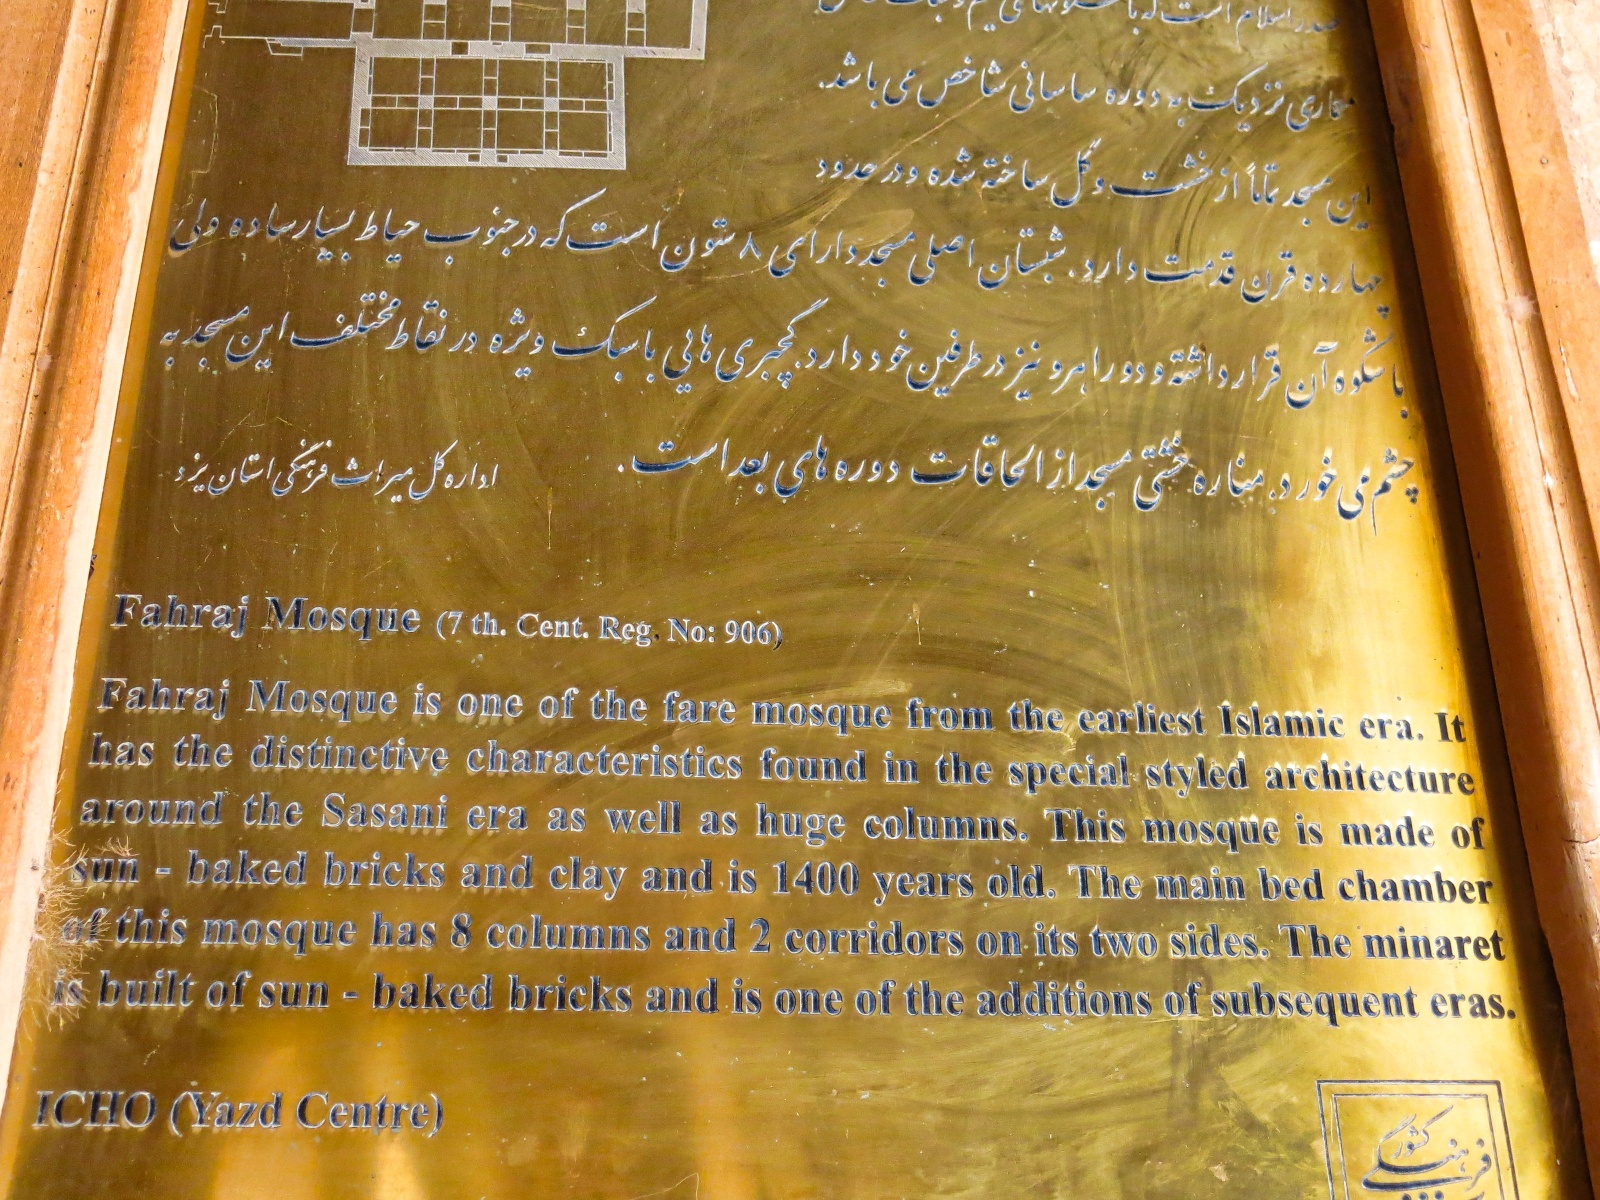 صدر اسلام است که با
معماری نزدیک به دوره ساسانی شاخص می باشد.
این مسجد تماماً از خشت و گل ساخته شده و در حدود
چهارده قرن قدمت دارد. شبستان اصلی مسجد دارای ۸ ستون است که در جنوب حیاط بسیار ساده ولی
با شکوه آن قرار داشته و دو راهرو نیز در طرفین خود دارد. گچبری هایی با سبک ویژه در نقاط مختلف این مسجد به
چشم می خورد. مناره خشتی مسجد از الحاقات دوره های بعد است.
اداره کل میراث فرهنگی استان یزد
Fahraj Mosque (7 th. Cent. Reg. No: 906)
Fahraj Mosque is one of the fare mosque from the earliest Islamic era. It
has the distinctive characteristics found in the special styled architecture
around the Sasani era as well as huge columns. This mosque is made of
sun - baked bricks and clay and is 1400 years old. The main bed chamber
of this mosque has 8 columns and 2 corridors on its two sides. The minaret
is built of sun - baked bricks and is one of the additions of subsequent eras.
ICHO (Yazd Centre)
کشور
فرهنگی